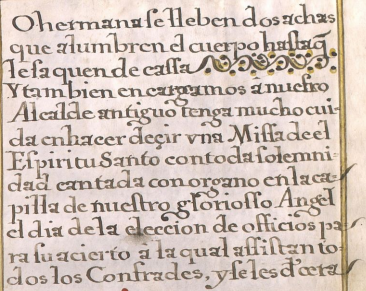 O hermana se lleben dos achas
que alumbren el cuerpo hasta q̃
le saquen de cassa
Y tambien encargamos à nuestro
Alcalde antiguo tenga mucho cui-
da en hacer deçir vna Missa de el
Espiritu Santo con toda solemni-
dad cantada con organo en la ca-
pilla de nuestro glorioso Angel
el dia de la eleccion de officios pa-
ra su acierto à la qual assistan to-
dos los Confrades, y se les d'ceta